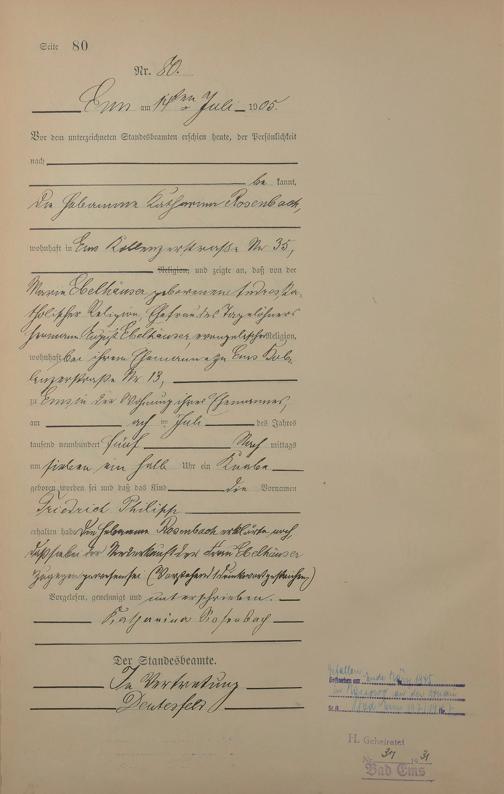 Seite 80
Nr. 80.
Ems am ten Juli 1905.
Vor dem unterzeichneten Standesbeamten erschien heute, der Persönlichkeit
nach
be kannt,
die Hebamme Katharina Rosenbach,
wohnhaft in Ems Koblenzerstraße Nr 35,
Religion, und zeigte an, daß von der
Marie Ebelhäuser geborenen Andres, ka-
tholischer Religion, Ehefrau des Tagelöhners
Hermann August Ebelhäuser evangelischer Religion,
wohnhaft bei ihrem Ehemanne zu Ems Kob-
lenzerstraße Nr 13,
zu Ems in der Wohnung ihres Ehemannes,
am ten Juli des Jahres
tausend neunhundert fünf Nach mittags
um sieben ein halb Uhr ein Knabe
geboren worden sei und daß das Kind die Vornamen
Friedrich Philipp
erhalten habe. Die Hebamme Rosenbach erklärte noch
daß sie bei der Niederkunft der Ebelhäuser
zugegen gewesen sei. (Vorstehend Druckwort gestrichen)
Vorgelesen, genehmigt und unterschrieben.
Katharina Rosenbach
Der Standesbeamte.
In Vertretung
gefallen
Gestorben am Ende März 1945
an der Donau
St. A. Bad Ems Nr.
H. Geheiratet
Nr. 31 1931
Bad Ems